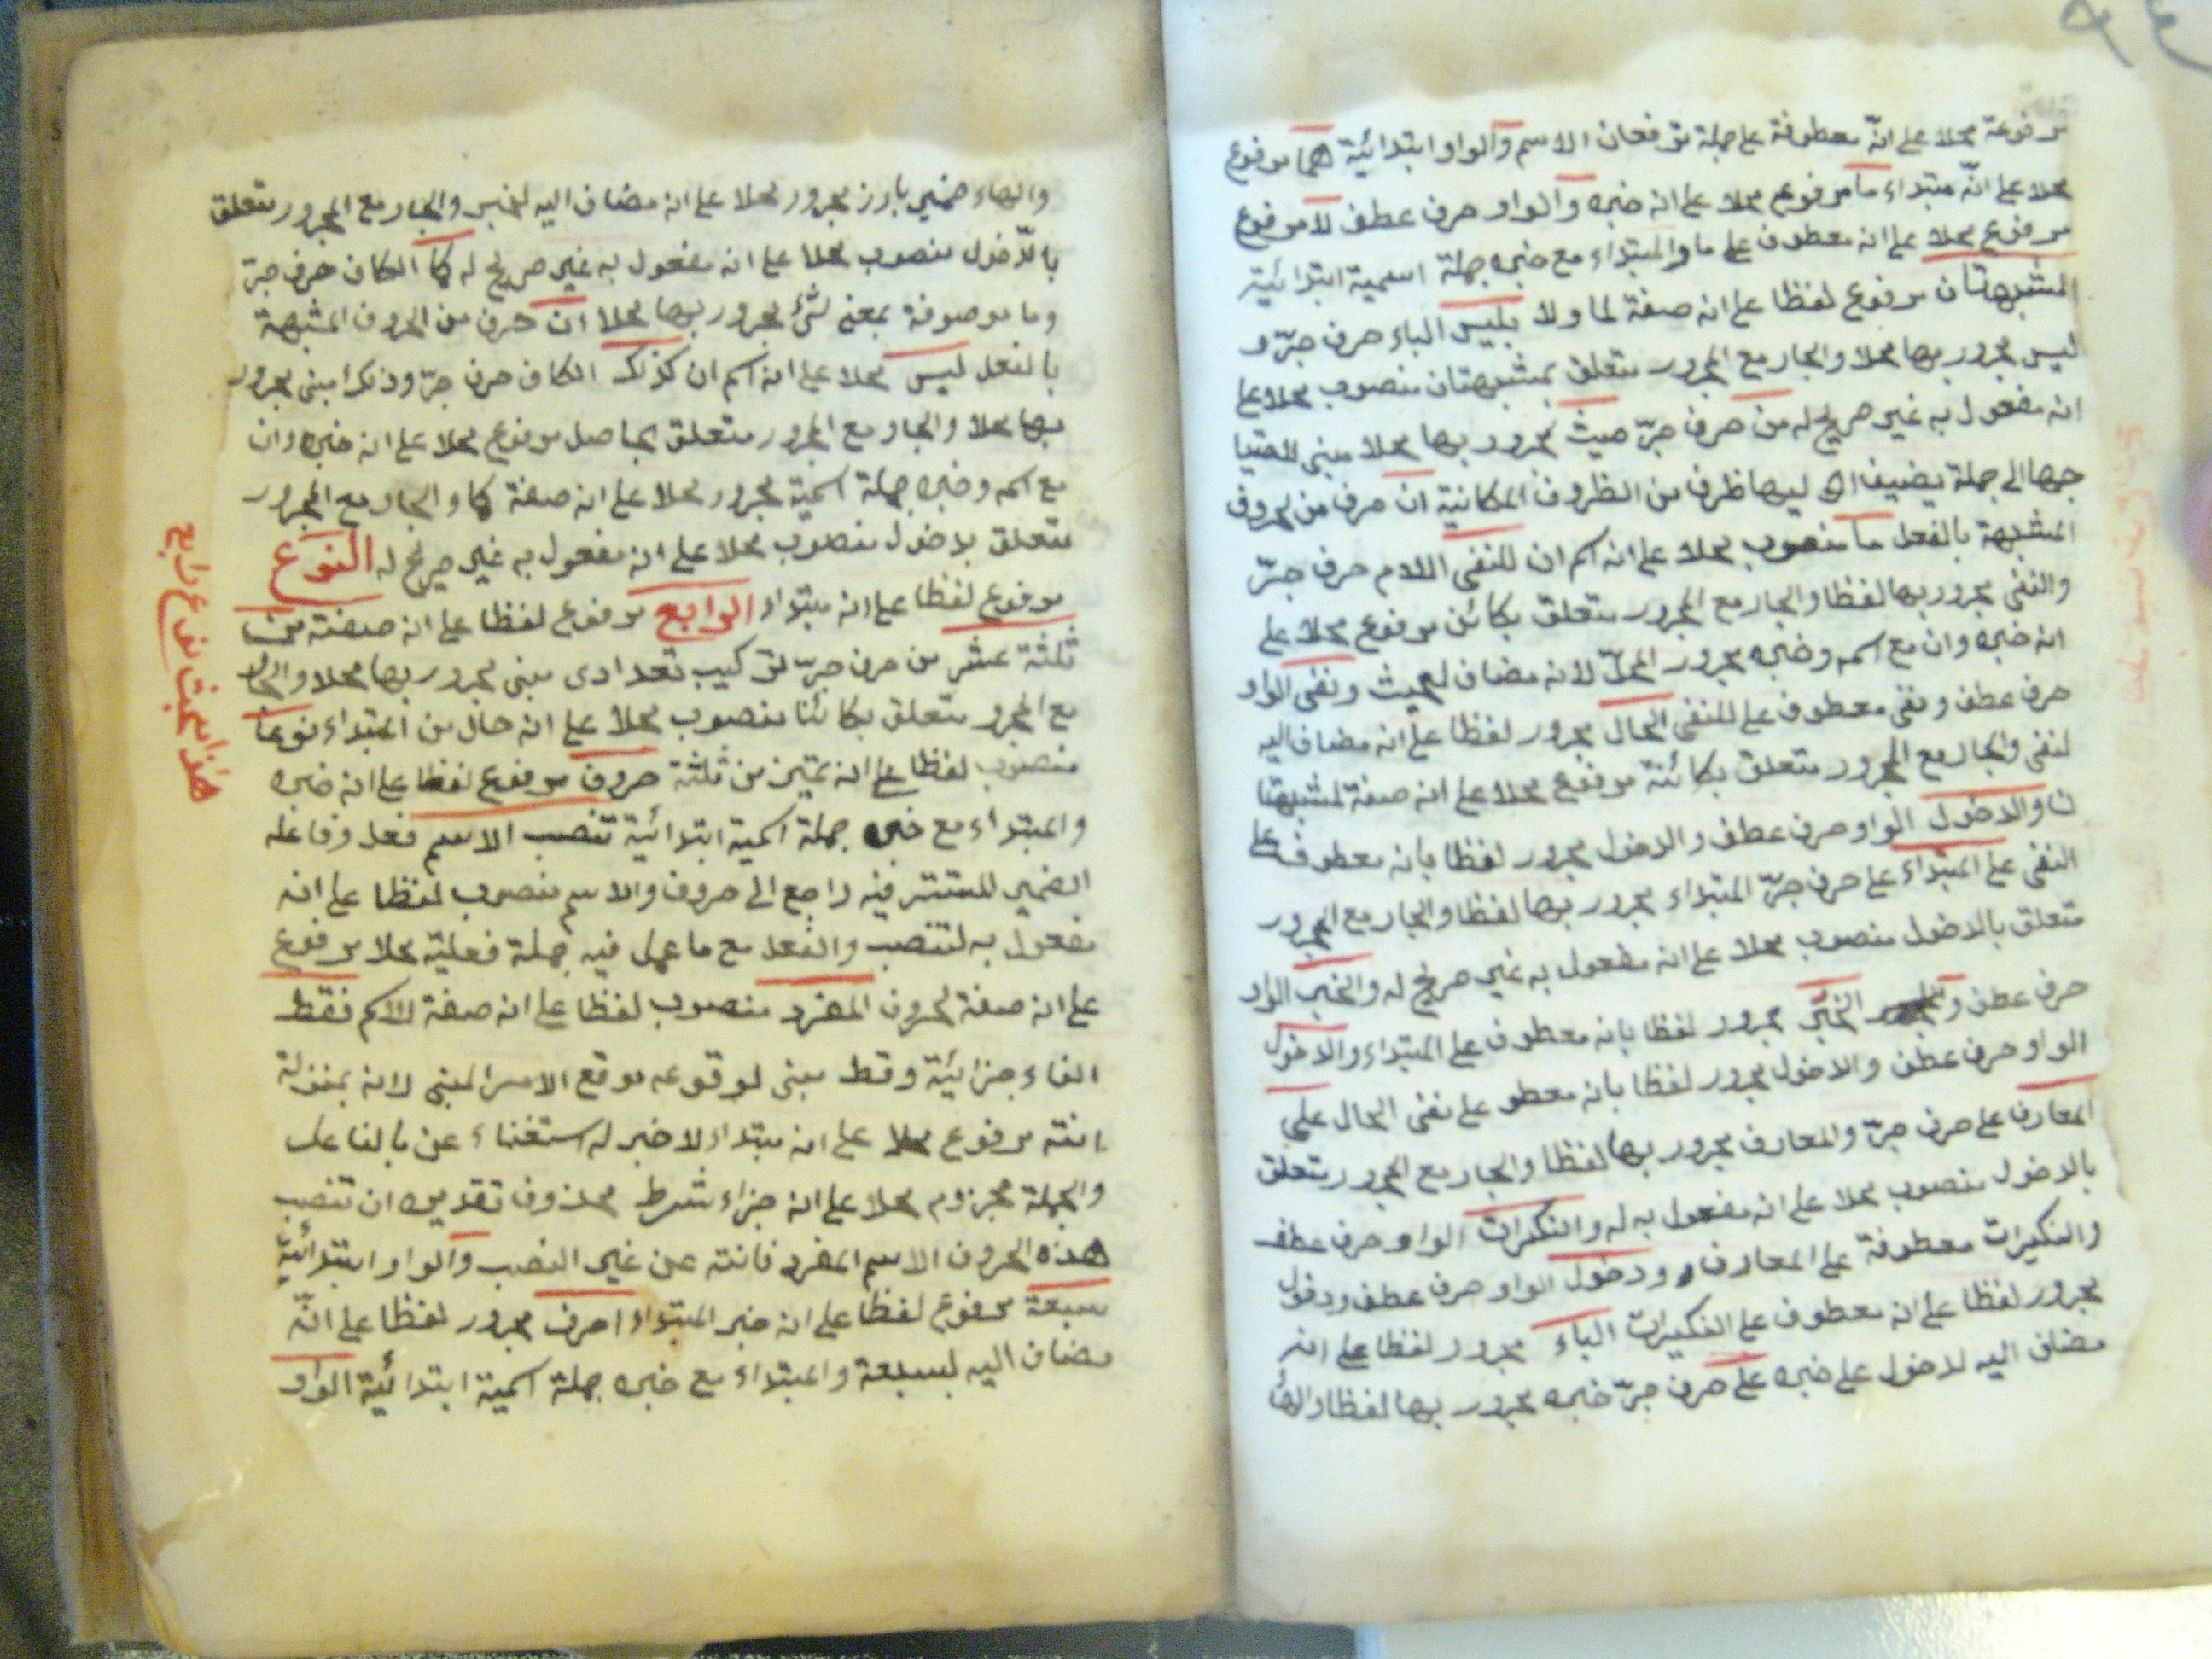 مرفوعة محلا على انّه معطوفة على جملة ترفعان الاسم والواو ابتدائية هما مرفوع
محلا على انّه مبتداء ما مرفوع محلا على انه خبره والواو حرف عطف لا مرفوع
مرفوع محلا على انه معطوف على ما والمبتداء مع خبره جملة اسمية ابتدائية
المشبهتان مرفوع لفظا على انه صفة لما ولا بليس الباء حرف جرّ و
ليس مجرور بها محلا والجار مع المجرور متعلق بمشبهتان منصوب محلا على
انه مفعول به غير صريح له من حرف جرّ حيث مجرور بها محلا مبنى للاحتيا
جها الى جملة يضيف الى ليها ظرف من الظروف المكانية ان حرف من لحروف
المشبهة بالفعل ما منصوب محلا على انه اسم ان للنفى اللام حرف جرّ
والنفى مجرور بها لفظا والجار مع المجرور متعلق بكائن مرفوع محلا على
انه خبره وان مع اسمه وخبره مجرور المحلّ لانه مضاف لحيث ونفى الواو
حرف عطف ونفى معطوف على للنفى الحال مجرور لفظا على انه مضاف اليه
لنفى والجار مع المجرور متعلق بكائنة مرفوع محلا على انه صفة لمشبهتا
ن والدخول الواو حرف عطف والدخول مجرور لفظا بانه معطوف على
النفى على المبتداء على حرف جرّ المبتداء مجرور بها لفظا والجار مع المجرور
متعلق بالدخول منصوب محلا على انه مفعول به غير صريح له والخبر الواو
حرف عطف و الخبر مجرور لفظا بانه معطوف على المبتداء والدخول
الواو حرف عطف والدخول مجرور لفظا بانه معطو على نفى الحال على
المعارف على حرف جرّ والمعارف مجرور بها لفظا والجار مع المجرور متعلق
بالدخول منصوب محلا على انه مفعول به له والنكيرات الواو حرف عطف
والنكيرات معطوفة على المعارف ودخول الواو حرف عطف ودخول
مجرور لفظا على انه معطوف على النكيرات الباء مجرور لفظا على انه
مضاف اليه لدخول على خبره على حرف جرّ خبره مجرور بها لفظا والها
والهاء ضمير بارز مجرور محلا على انه مضاف اليه لخبر والجار مع المجرور متعلق
بالدّخول منصوب محلا على انه مفعول به غير صريح له كما الكاف حرف جرّ
وما موصوفة بمعنى لشئ مجرور بها محلا ان حرف من الحروف المشبهة
بالفعل ليس محلا على انه اسم ان كذلك الكاف حرف جرّ وذلك مبنى مجرور
بها محلا والجار مع المجرور متعلق بحاصل مرفوع محلا على انه خبره وان
مع اسمه وخبره جملة اسمية مجرور محلا على انه صفة كما والجار مع المجرور
متعلق بدخول منصوب محلا على انه مفعول به غير صريح له النوع
مرفوع لفظا على انه مبتداء الرابع مرفوع لفظا على انه صفته من
ثلثة عشر من حرف جرّ تركيب تعدادى مبنى مجرور بها محلا والجار
مع المجرور متعلق بكائنا منصوب محلا على انه حال من المبتداء نوعا
منصوب لفظا على انه تميز من ثلثة حروف مرفوع لفظا على انه خبره
والمبتداء مع خبره جملة اسمية ابتدائية تنصب الاسم فعل وفاعله
الضمير المستتر فيه راجع الى حروف والاسم منصوب لفظا على انه
مفعول به لتنصب والفعل مع ما عمل فيه جملة فعلية محلا مرفوع
على انه صفة لحروف المفرد منصوب لفظا على انه صفة للاسم فقط
الفاء جزائية وقط مبنى لوقوعه موقع الامر المبنى لانه بمنزلة
انته مرفوع محلا على انه مبتداء لا خبر له استغناء عن بالفاعل
والجملة مجزوم محلا على انه جزاء شرط محذوف تقديره ان تنصب
هذه الحروف الاسم المفرد فانته عن غير النصب والواو ابتدائية
سبعة مرفوع لفظا على انه خبر المبتداء احرف مجرور لفظا على انّه
مضاف اليه لسبعة والمبتداء مع خبره جملة اسمية ابتدائية الواو
هذا بحث نوع رابع